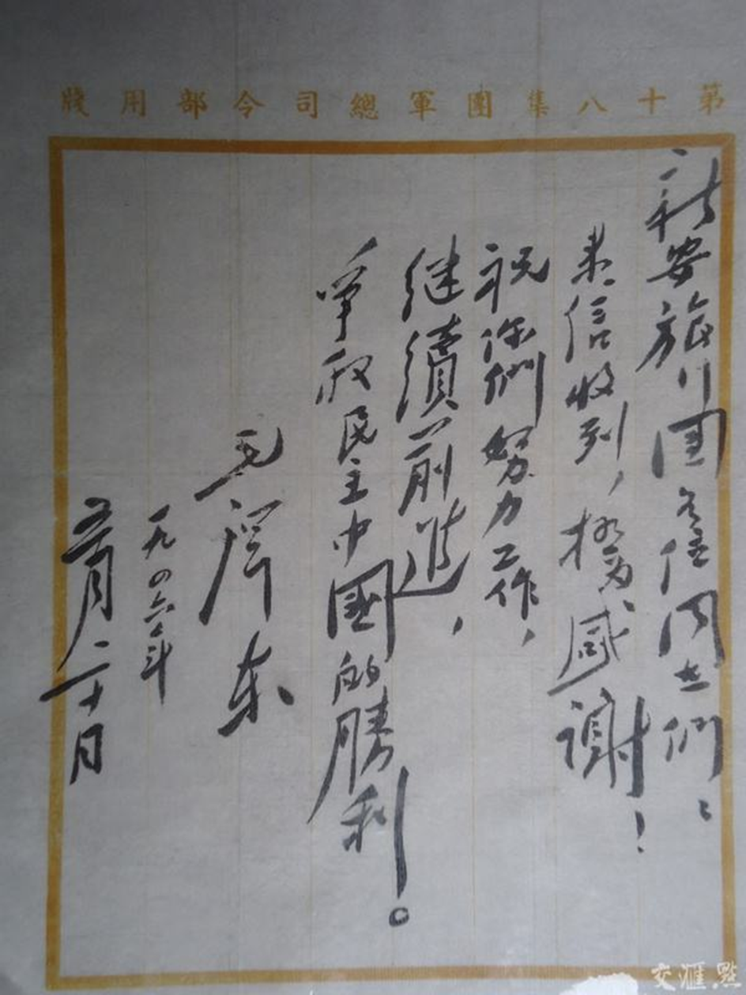 第十八集團軍總司令部用牋
新安旅行團各位同志們：
来信收到，極为感謝！
祝你們努力工作，
继續前進，
爭取民主中國的勝利。
毛澤东
一九四六年
五月二十日
交匯點